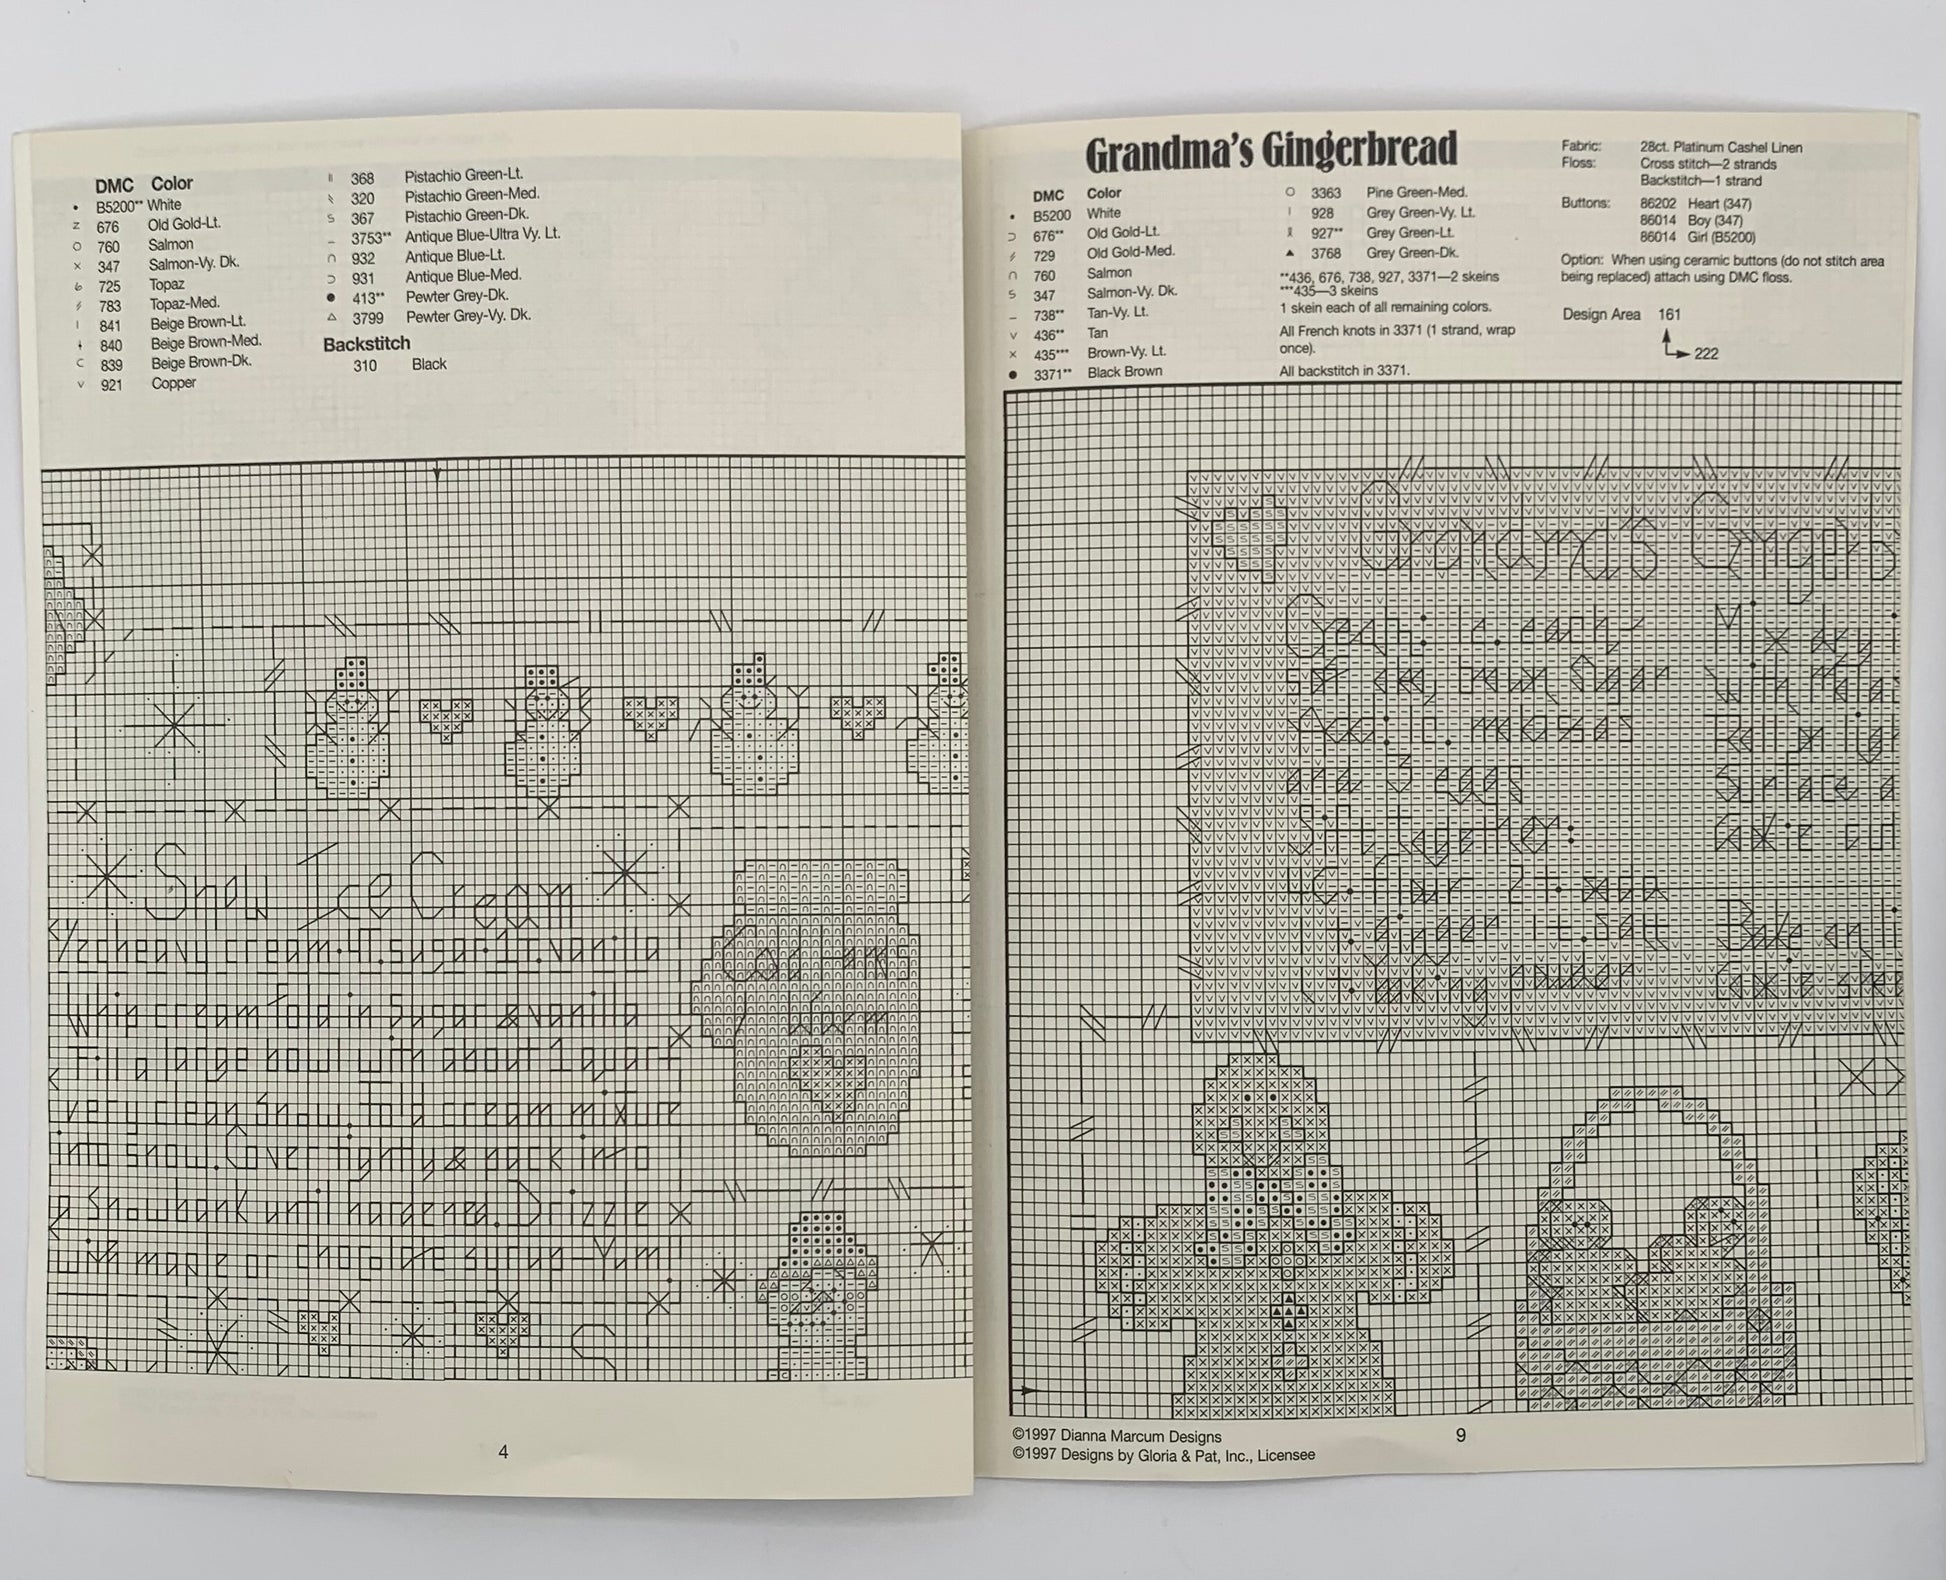 DMC Color
• B5200** White
z 676 Old Gold-Lt.
O 760 Salmon
× 347 Salmon-Vy. Dk.
6 725 Topaz
783 Topaz-Med.
I 841 Beige Brown-Lt.
840 Beige Brown-Med.
C 839 Beige Brown-Dk.
V 921 Copper
II 368 Pistachio Green-Lt.
\\ 320 Pistachio Green-Med.
S 367 Pistachio Green-Dk.
– 3753** Antique Blue-Ultra Vy. Lt.
∩ 932 Antique Blue-Lt.
⊃ 931 Antique Blue-Med.
● 413** Pewter Grey-Dk.
△ 3799 Pewter Grey-Vy. Dk.
Backstitch
310 Black
Snow Ice Cream
1/2 c heavy cream. 4T. sugar. 1t. vanilla
Whip cream fold in Sugar & vanilla
Fill a large bowl with about 1 quart
very clean Snow. Fold cream mixture
into snow. Cover lightly & pack into
a Snowbank until hardened. Drizzle
with maple or chocolate syrup Yum!
4
Grandma's Gingerbread
DMC Color
• B5200 White
⊃ 676** Old Gold-Lt.
729 Old Gold-Med.
∩ 760 Salmon
S 347 Salmon-Vy. Dk.
– 738** Tan-Vy. Lt.
V 436** Tan
× 435*** Brown-Vy. Lt.
● 3371** Black Brown
O 3363 Pine Green-Med.
I 928 Grey Green-Vy. Lt.
927** Grey Green-Lt.
▲ 3768 Grey Green-Dk.
**436, 676, 738, 927, 3371—2 skeins
***435—3 skeins
1 skein each of all remaining colors.
All French knots in 3371 (1 strand, wrap
once).
All backstitch in 3371.
Fabric: 28ct. Platinum Cashel Linen
Floss: Cross stitch—2 strands
Backstitch—1 strand
Buttons: 86202 Heart (347)
86014 Boy (347)
86014 Girl (B5200)
Option: When using ceramic buttons (do not stitch area
being replaced) attach using DMC floss.
Design Area 161
222
©1997 Dianna Marcum Designs
©1997 Designs by Gloria & Pat, Inc., Licensee
9